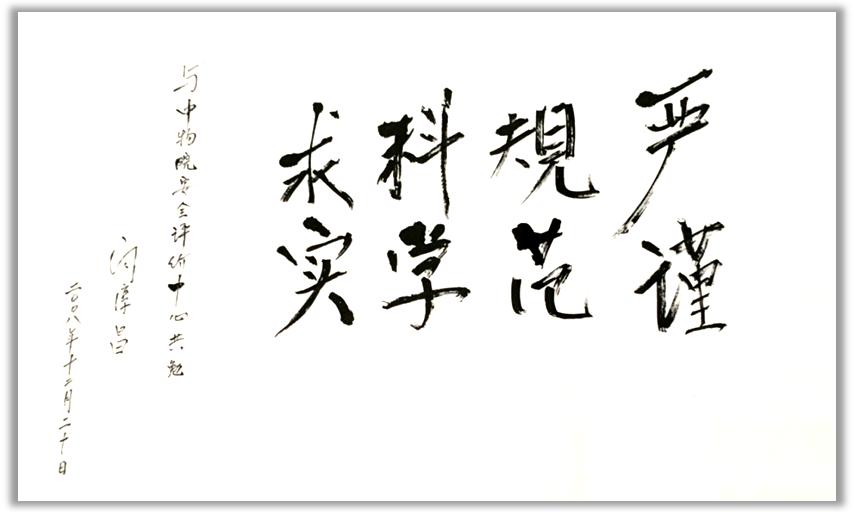 严谨
规范
科学
求实
与中物院安全评价中心共勉
闪淳昌
二〇〇八年十二月二十日